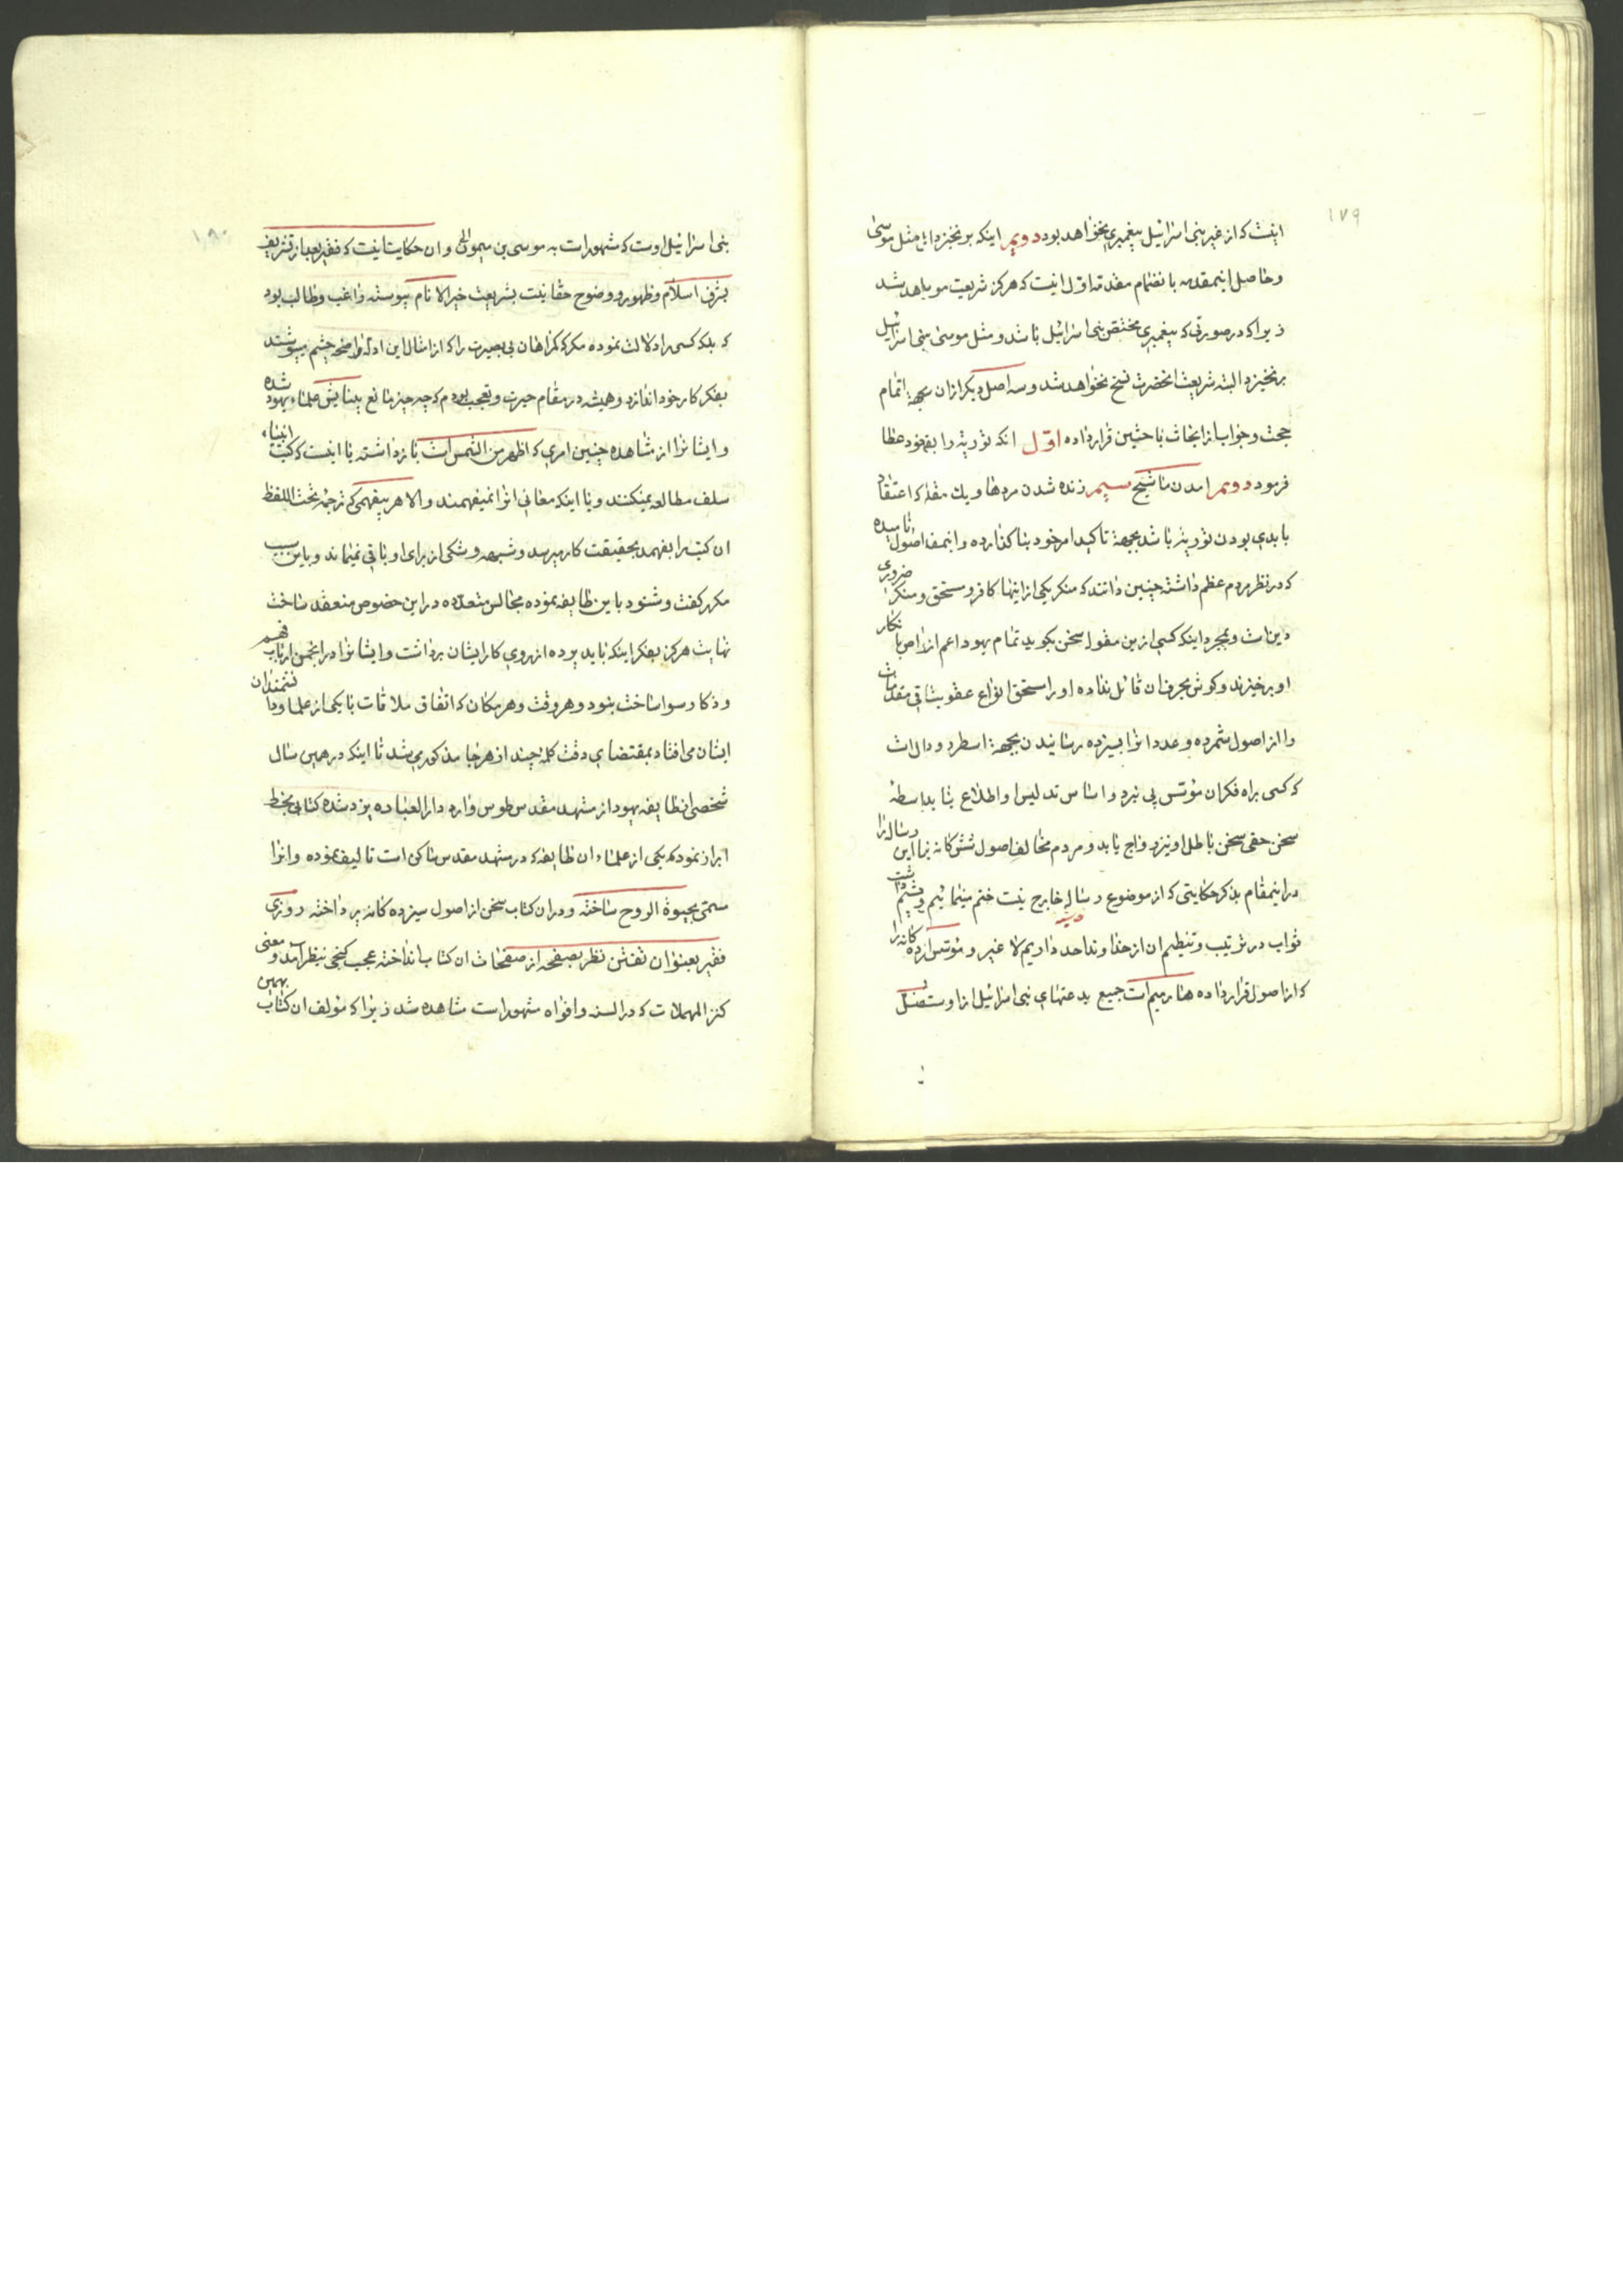 ۱۷۹
اینست که از غیر بنی اسرائیل پیغمبری نخواهد بود دویم اینکه برنخیزد مثل موسی
و حاصل اینمقدمه بانضمام مقدمه اول اینست که هرکز شریعت موسی باهد نشد
زیرا که در صورتی که پیغمبری مختص بنی اسرائیل باشد و مثل موسی بنی اسرائیل
برنخیزد البته شریعت انحضرت نسخ نخواهد شد و سه اصل دیکر از ان بجهة اتمام
حجت و جواب از ابحاث باحثین قرار داده اول انکه توریة را بقهود عطا
فرمود دویم امدن ماشیح سیم زنده شدن مردها و یک مقله که اعتقاد
بابدی بودن توریة باشد بجهة تاکید امر خود بنا کذارده و اینمف اصول نامیده
که در نظر مردم عظم داشته چنین دانند که منکر یکی از اینها کافر و مستحق و منکر ضروری
دین است و بمجرد اینکه کسی ازین مقوله سخن بکوید تمام یهود اعم از بانکار
او برخیزند و کوش بحرف ان قائل نداده او را مستحق انواع عقوبت باقی مقدمات
را از اصول شمرده و عدد انرا بسیزده رسانیدن بجهة اسطرد و دال است
که کسی براه فکر ان مؤسس پی نبرد و اساس تدلیس او اطلاع نیابد واسطه
سخن حقی سخن باطل او نیز رواج یابد و مردم مخالف اصول شش کانه نما این رساله را
در اینمقام بذکر حکایتی که از موضوع رساله خارج نیست ختم مینمائیم و چشم داشت
ثواب در ترتیب و تنظیم ان از خداوند احد داریم لا غیر و مؤسس سیزده کانه را
که از اصول قرار داده هنا رمیم است جمیع بدعتهای بنی اسرائیل از اوست فضل
۱۸۰
بنی اسرائیل اوست که مشهور است به موسی بن میمون و ان حکایت اینست که فقیر بعد از تشریف
بشرف اسلام و ظهور و وضوح حقانیت بشریعت خیر الانام پیوسته راغب و طالب بود
که بلکه کسی را دلالت نموده مکر که کمراهان بی بصیرت را که از امثال این ادله واضحه چشم میپوشند
بفکر کار خود اندازد و همیشه در مقام حیرت و تعجب بودم که چه چیز مانع بینایش علماء یهود شده
و ایشانرا از مشاهده چنین امری که اظهر من الشمس است باز داشته یا اینست که کتب انبیاء
سلف مطالعه نمیکنند و یا اینکه معانی انرا نمیفهمند و الا هر بیفهمی که ترجمه تحت اللفظ
ان کتب را بفهمد بحقیقت کار میرسد و شبهه و شکی از برای او باقی نمیماند و باین سبب
مکرر کفت و شنود باین طایفه نموده مجالس متعدده در این خصوص منعقد ساخت
نهایت هرکز بفکر اینکه باید پرده از روی کار ایشان برداشت و ایشانرا در انجمن ارباب فهم
و ذکا رسوا ساخت نبود و هر وقت و هر مکان که اتفاق ملاقات با یکی از علما و دانشمندان
ایشان می افتاد بمقتضای وقت کلمه چند از هر جا مذکور می شد تا اینکه در همین سال
شخصی از طایفه یهود از مشهد مقدس طوس وارد دار العباده یزد شده کتابی بخط
ابراز نمود که یکی از علماء ان طایفه که در مشهد مقدس ساکن است تالیف نموده و انرا
مسمی بحیوة الروح ساخته و در ان کتاب سخن از اصول سیزده کانه پرداخته روزی
فقیر بعنوان تفنن نظر بصفحه از صفحات ان کتاب انداخته عجب کنجی بنظر آمد و معنی
کنز المهملات که در السنه و افواه مشهور است مشاهده شد زیرا که مؤلف ان کتاب بهمین